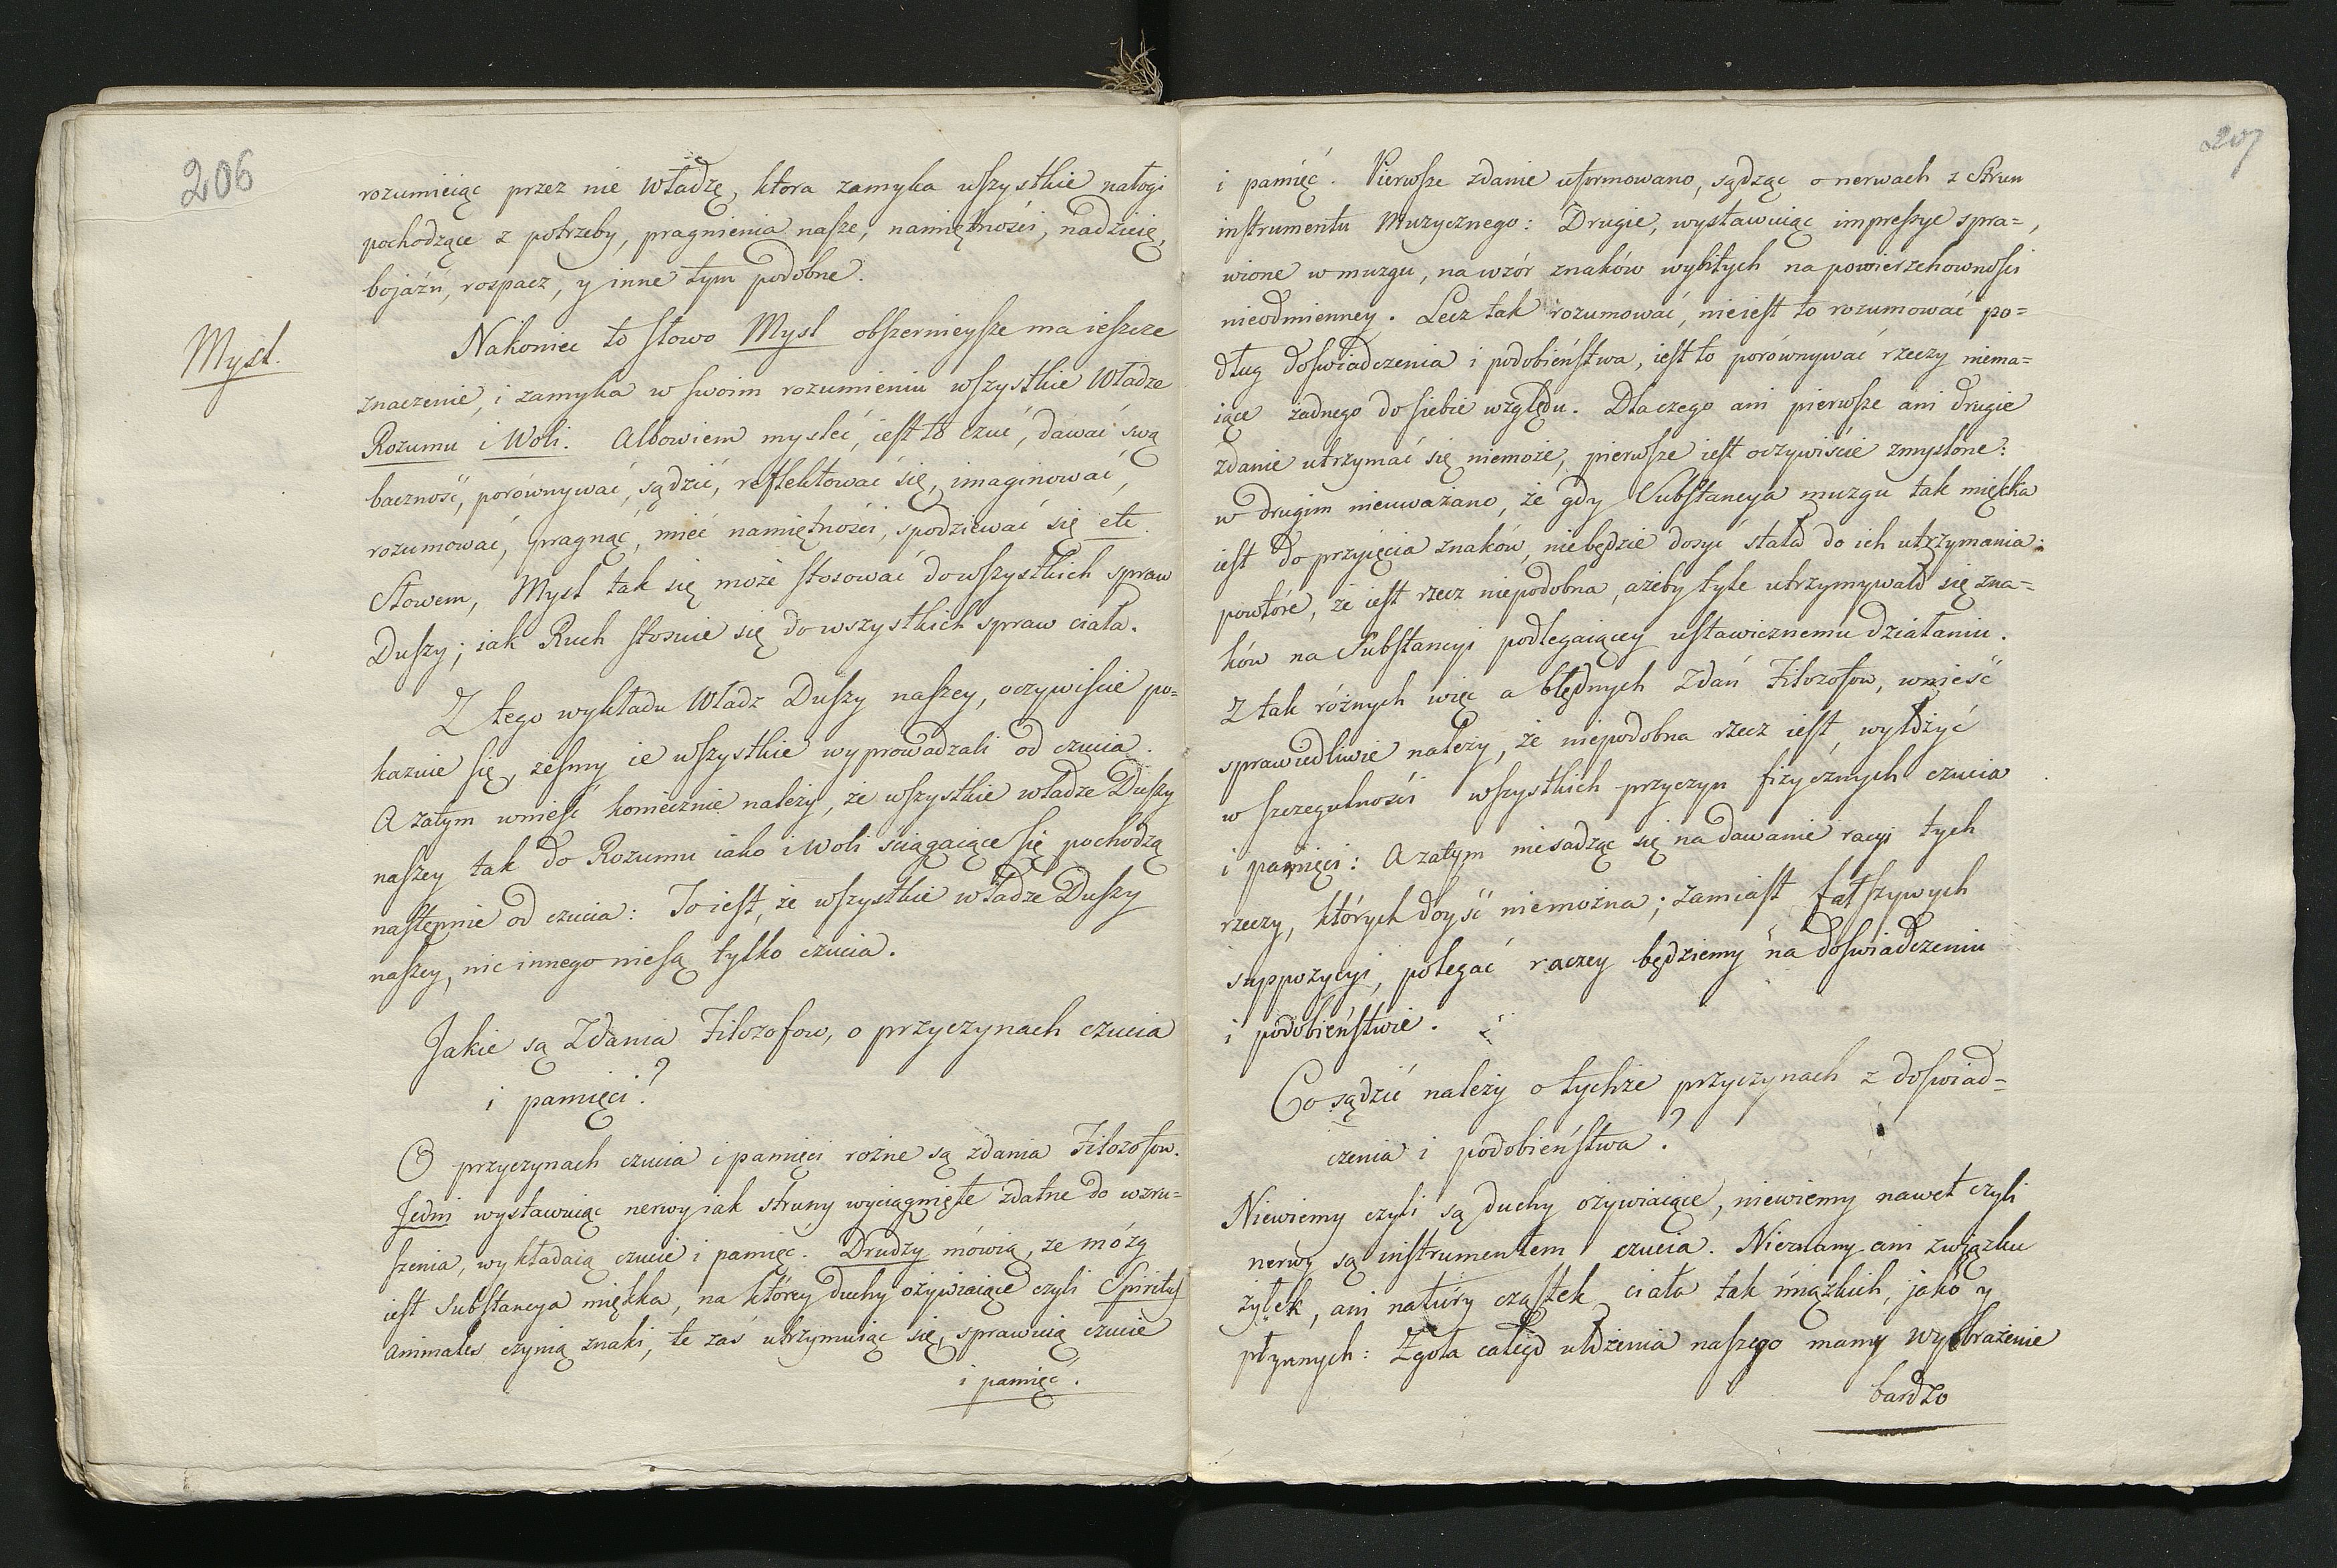 206
rozumieiąc przez nie Władzę, ktora zamyka wszystkie nałogi
pochodzące z potrzeby, pragnienia nasze, namiętności, nadzieię,
bojaźń, rospacz, y inne tym podobne.
Mysl.
Nakoniec to słowo Mysl obszernieysze ma ieszcze
znaczenie, i zamyka w swoim rozumieniu wszystkie Władze
Rozumu i Woli. Albowiem mysleć, iest to czuć, dawać swą
baczność, porównywać, sądzić, reflektować się, imaginować,
rozumować, pragnąć, mieć namiętności, spodziewać się etc.
Słowem, Mysl tak się może stosować do wszystkich spraw
Duszy; iak Ruch stosuie się do wszystkich spraw ciała.
Z tego wykładu Władz Duszy naszey, oczywiscie po=
kazuie się, żesmy ie wszystkie wyprowadzali od czucia.
A zatym wnieść koniecznie należy, że wszystkie władze Duszy
naszey tak do Rozumu iako i Woli ściągaiące się pochodzą
następnie od czucia: To iest, że wszystkie władze Duszy
naszey, nic innego niesą tylko czucia.
Jakie są Zdania Filozofow, o przyczynach czucia
i pamięci?
O przyczynach czucia i pamięci rożne są zdania Filozofow.
Jedni wystawuiąc nerwy iak struny wyciągnięte zdatne do wzru=
szenia, wykładaią czucie i pamięć. Drudzy mówią, że mózg
iest Substancya miękka, na którey duchy ożywiaiące czyli Spiritus
animales czynią znaki, te zaś utrzymuiąc się, sprawuią czucie
i pamięć.
207
i pamięć. Pierwsze zdanie uformowano, sądząc o nerwach z Strun
instrumentu Muzycznego: Drugie, wystawuiąc impressye spra=
wione w muzgu, na wzór znaków wybitych na powierzchowności
nieodmienney. Lecz tak rozumować, nieiest to rozumować po=
dług doswiadczenia i podobieństwa, iest to porównywać rzeczy niema=
iące żadnego do siebie względu. Dla czego ani pierwsze ani drugie
zdanie utrzymać się niemoże, pierwsze iest oczywiście zmyslone:
w drugim nieuważano, że gdy Substancya muzgu tak miękka
iest do przyięcia znaków, niebędzie dosyć stała do ich utrzymania:
powtóre, że iest rzecz niepodobna, ażeby tyle utrzymywało się zna=
ków na Substancyi podlegaiącey ustawicznemu działaniu.
Z tak różnych więc a błędnych Zdań Filozofow, wnieść
sprawiedliwie należy, że niepodobna rzecz iest, wyłożyć
w szczegulności wszystkich przyczyn fizycznych czucia
i pamięci: A zatym niesadząc się na dawanie racyi tych
rzeczy, których doyść niemożna; zamiast fałszywych
suppozycyi, polegać raczey będziemy na doswiadczeniu
i podobieństwie.
Co sądzić należy o tychże przyczynach z doswiad=
czenia i podobieństwa?
Niewiemy czyli są duchy ożywiaiące, niewiemy nawet czyli
nerwy są instrumentem czucia. Nieznamy ani związku
żyłek, ani natury cząstek ciała tak miązkich, jako y
płynnych: Zgoła całego ułożenia naszego mamy wyobrażenie
bardzo